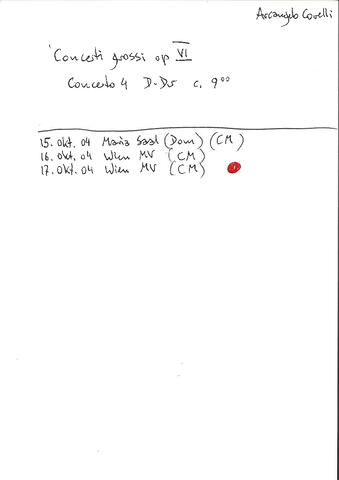 Arcangelo Corelli
Concerti grossi op VI
Concerto 4 D-Dur c. 9⁰⁰
15. Okt. 04 Maria Saal (Dom) (CM)
16. Okt. 04 Wien MV (CM)
17. Okt. 04 Wien MV (CM)